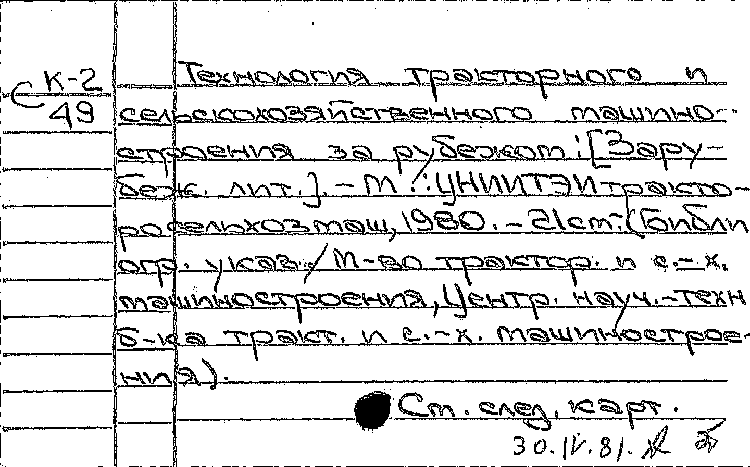 С К-2
49
Технология тракторного и
сельскохозяйственного машино-
строения за рубежом: [Зару-
беж. лит.]. - М.: ЦНИИТЭИтракто-
росельхозмаш, 1980. - 21см. (Библи
огр. указ. / М-во трактор. и с.-х.
машиностроения, Центр. науч.-техн
б-ка тракт. и с.-х. машинострое-
ния).
См. след. карт.
30.IV.81.